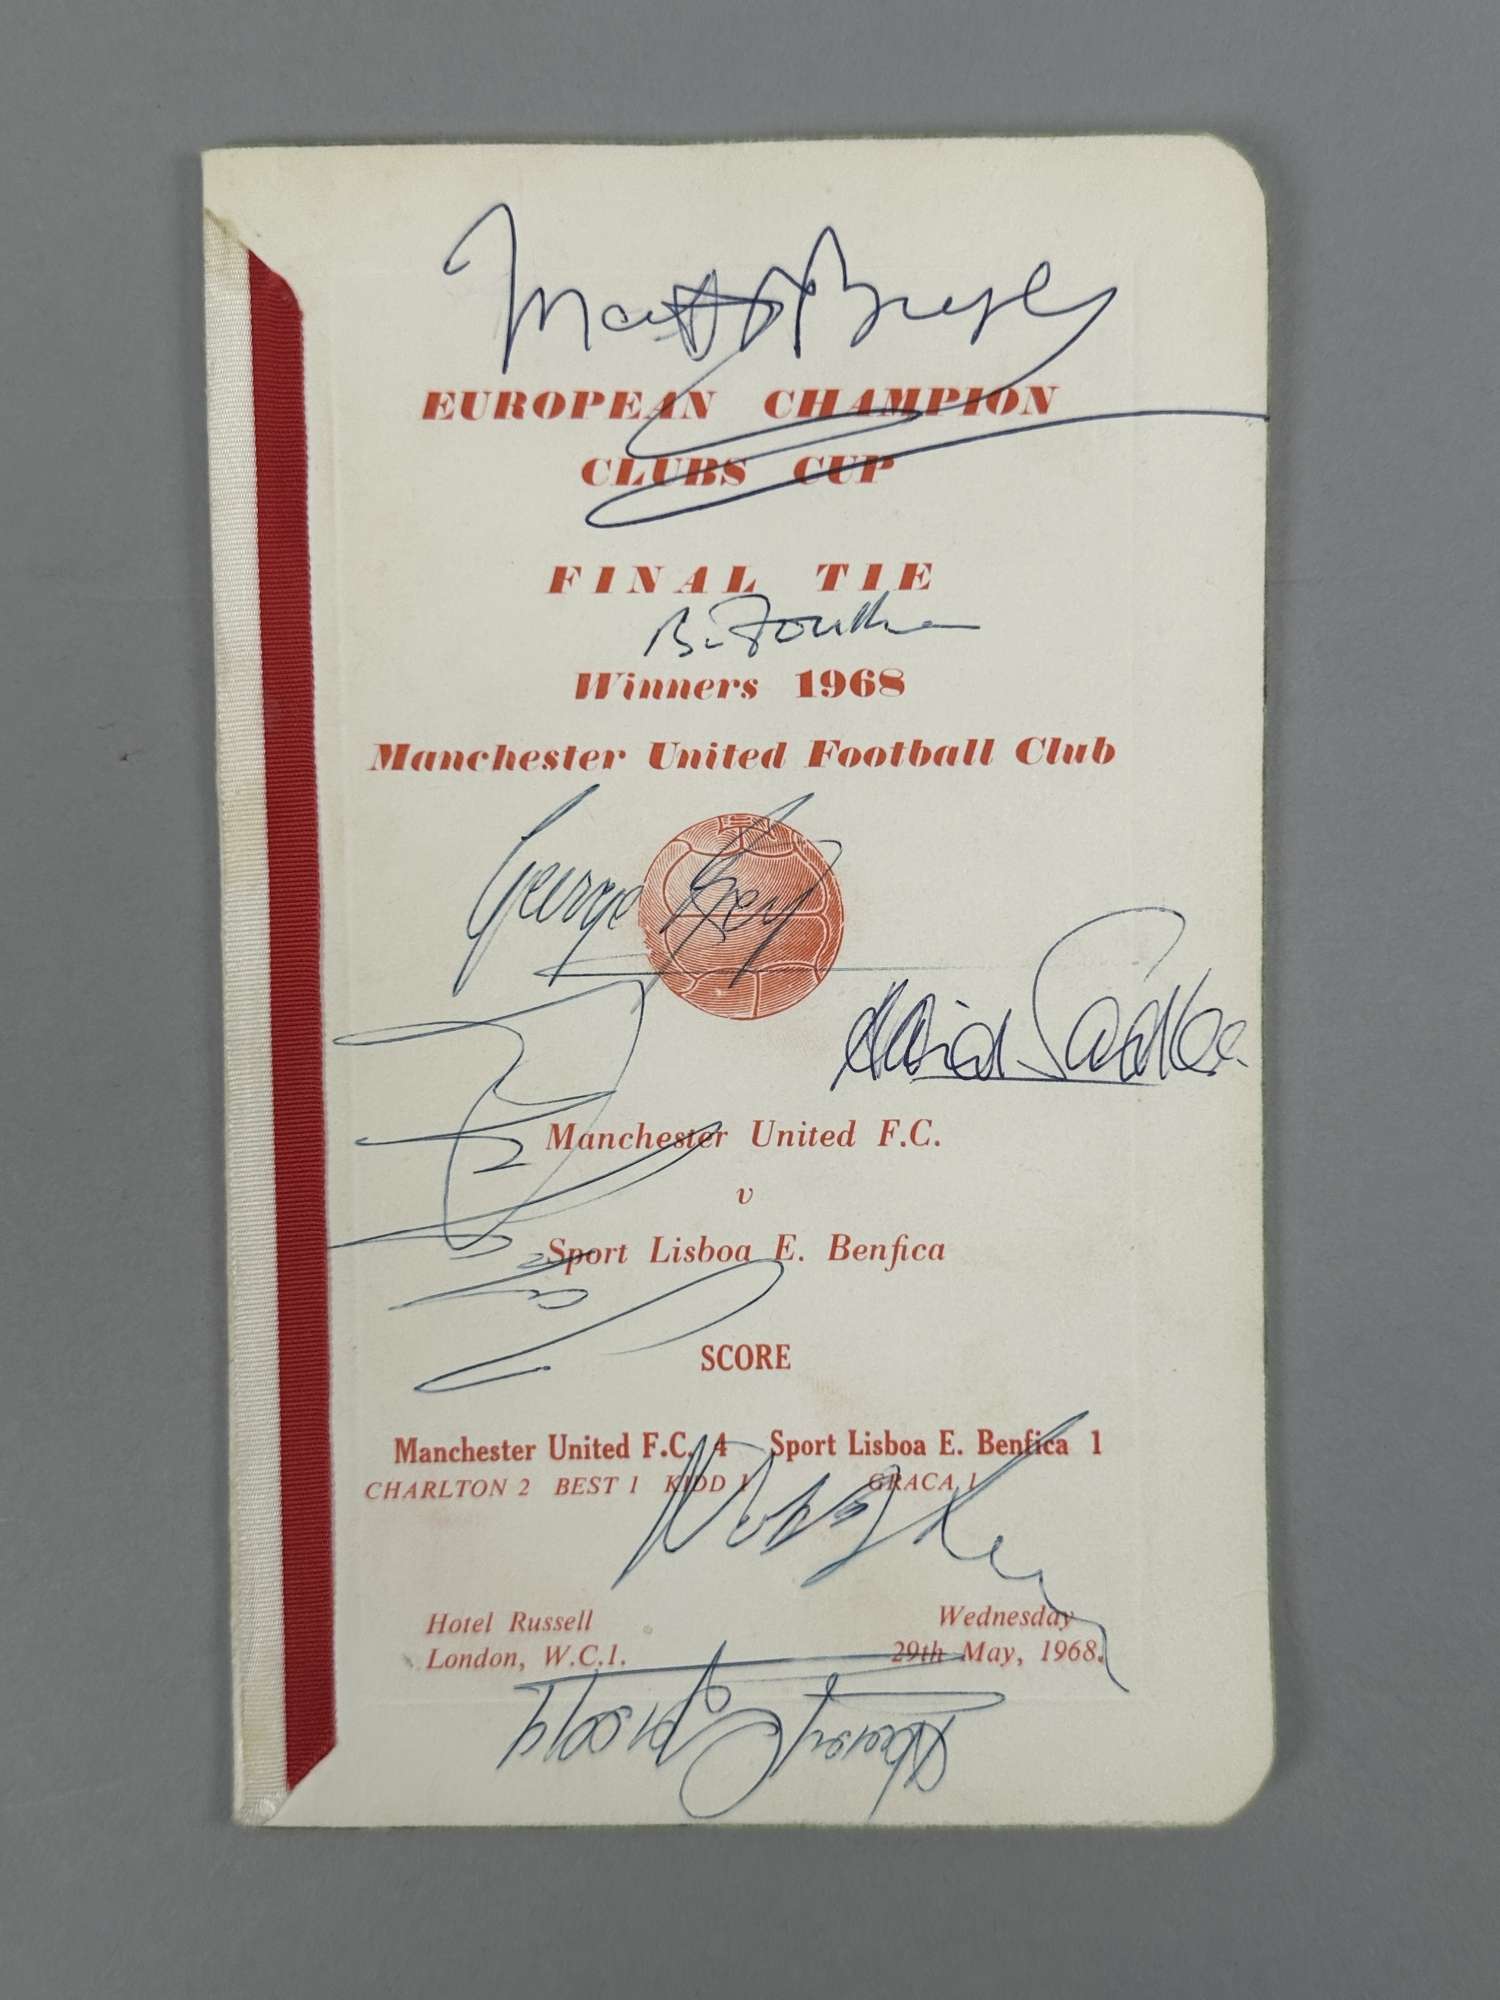 Matt Busby
EUROPEAN CHAMPION
CLUBS CUP
FINAL TIE
B. Foulkes
Winners 1968
Manchester United Football Club
George Best
David Sadler
Manchester United F.C.
v
Sport Lisboa E. Benfica
SCORE
Manchester United F.C. 4 Sport Lisboa E. Benfica 1
CHARLTON 2 BEST 1 KIDD 1 GRACA 1
Hotel Russell Wednesday
London, W.C.1. 29th May, 1968.